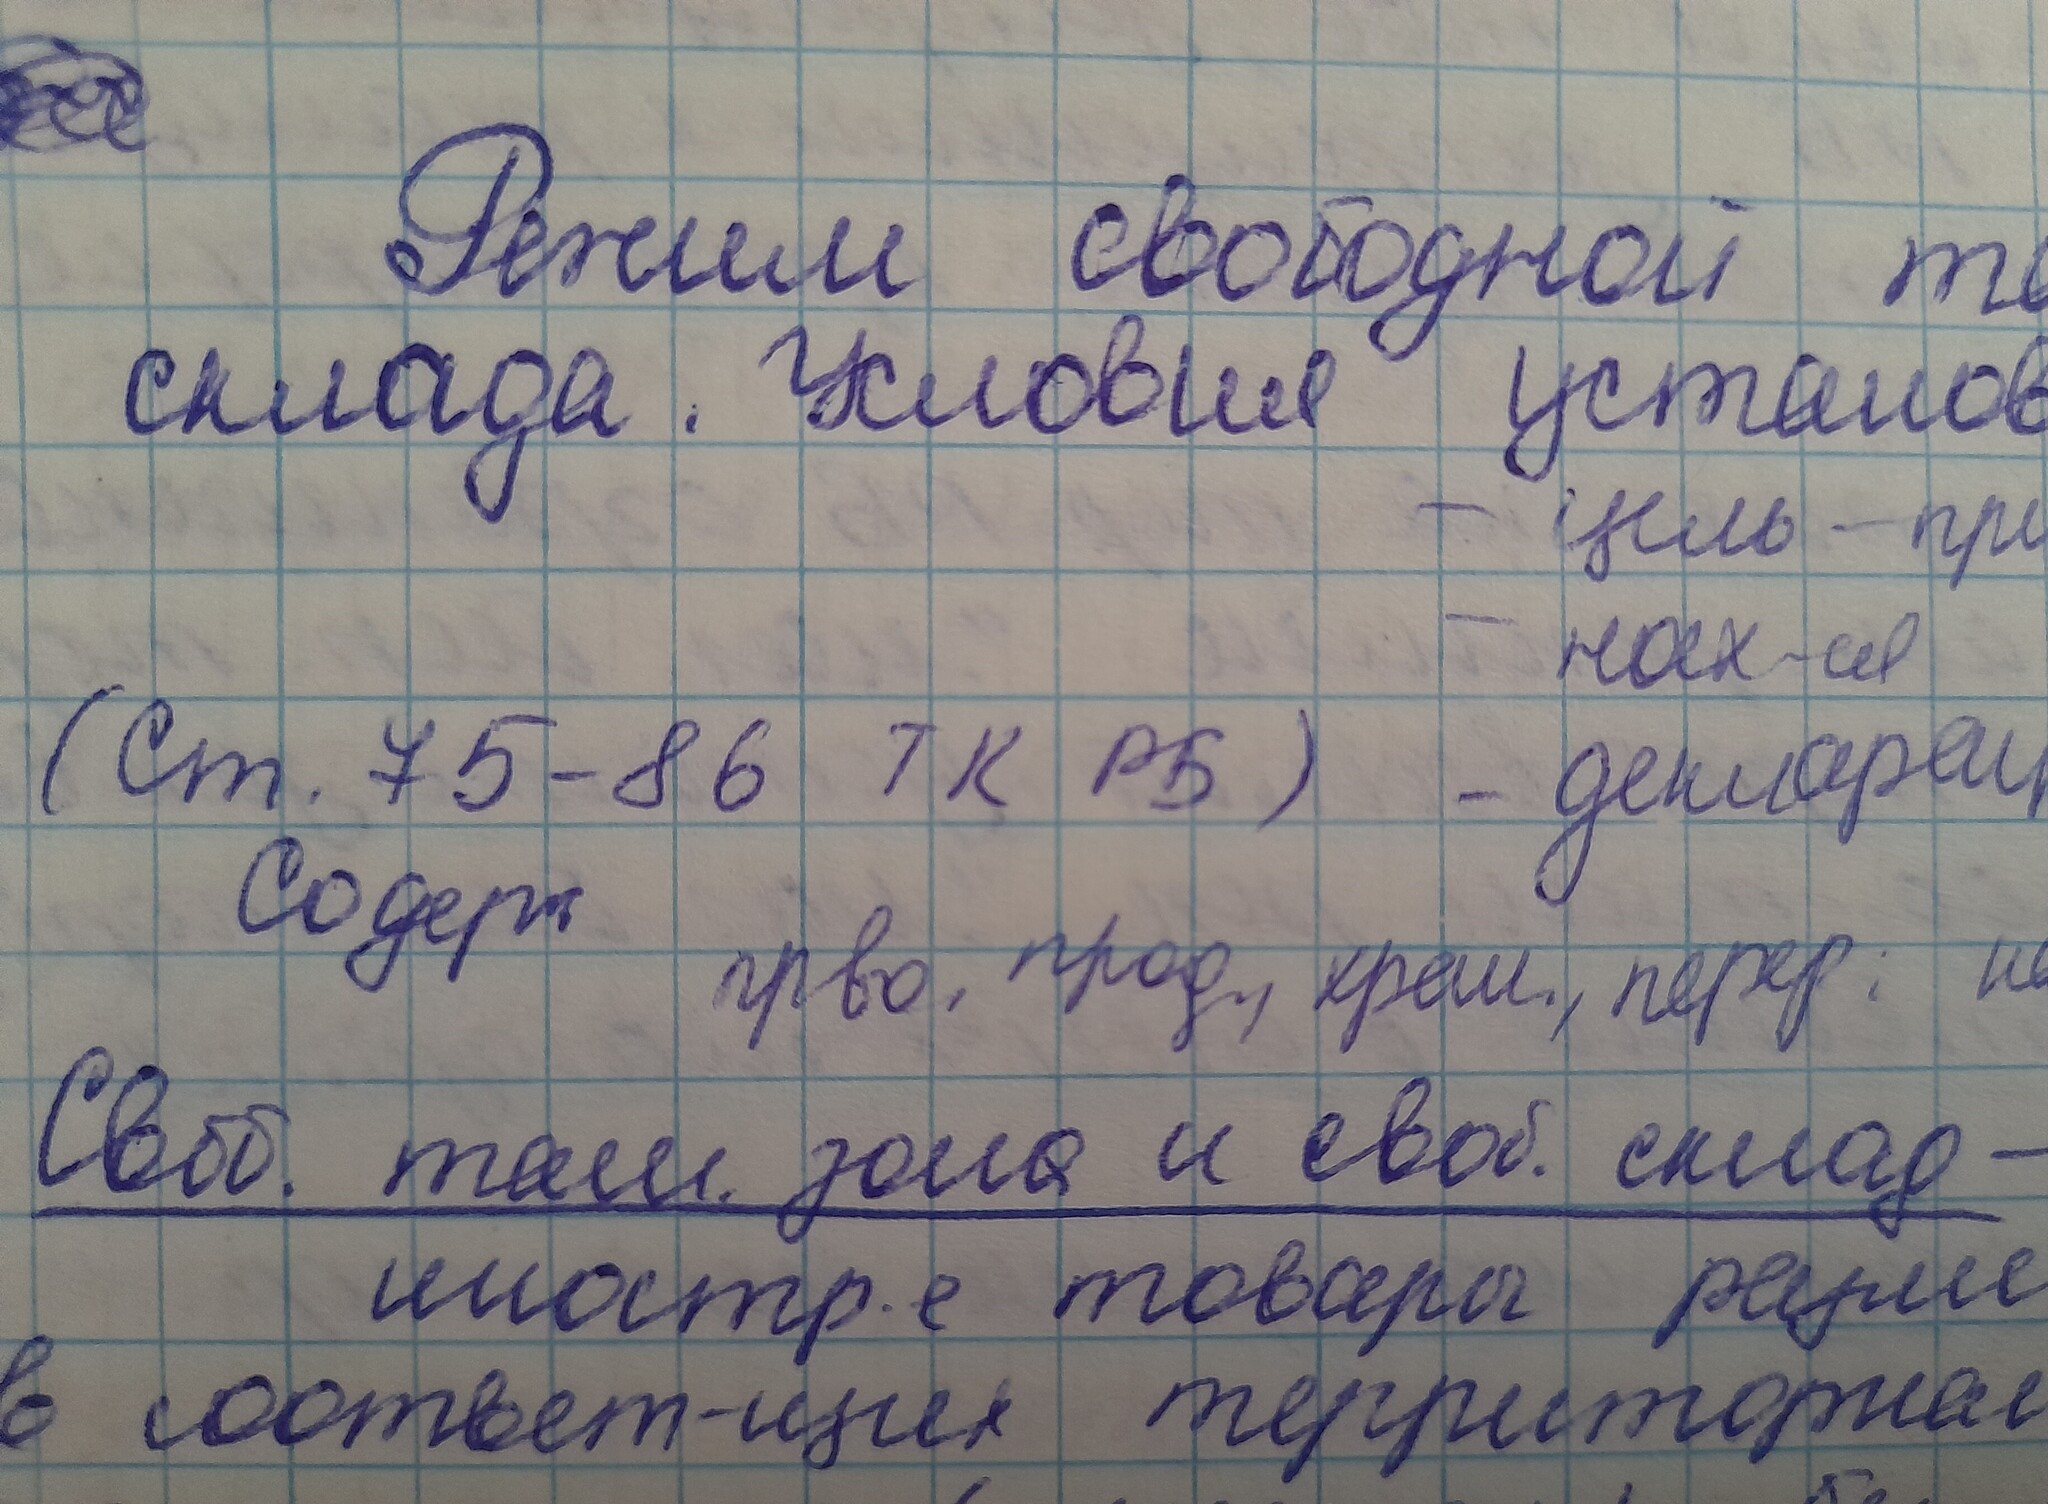 Режим свободной та
склада. Условия установ
- цель - при
- нах-ия
(Ст. 75-86 ТК РБ) - декларац
Содерж
пр-во, прод., хран., перер.: не
Своб. там. зона и своб. склад -
иностр.е товары разме
в соответ-щих территориал